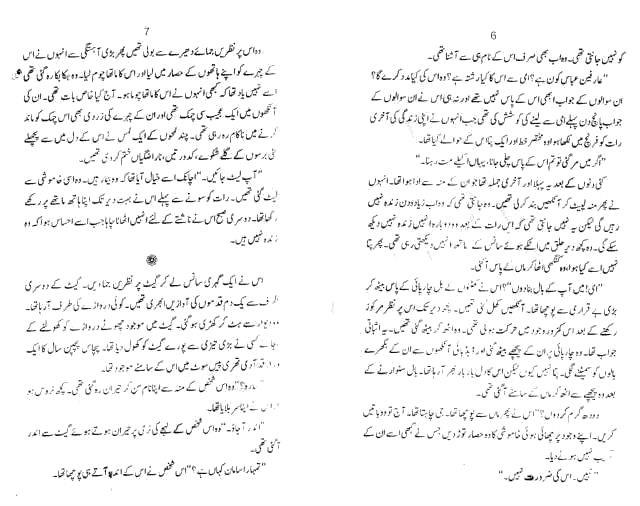 6
کو نہیں جانتی تھی۔ وہ اب بھی صرف اس کے نام ہی سے آشنا تھی۔
"عارفین عباس کون ہے؟ امی سے اس کا کیا رشتہ ہے؟ وہ اس کی کیا مدد کرے گا؟
ان سوالوں کے جواب ابھی اس کے پاس نہیں تھے اور نہ ہی اس نے ان سوالوں کے
جواب پانچ دن پہلے امی سے لینے کی کوشش کی تھی جب انہوں نے اپنی زندگی کی آخری
رات کو فرنچ میں لکھا ہوا وہ مختصر خط اور ایک پتا اس کے حوالے کیا تھا۔
"اگر میں مر گئی تو تم اس کے پاس چلی جانا، یہاں اکیلے مت رہنا۔"
کئی دنوں کے بعد یہ پہلا اور آخری جملہ تھا جو ان کے منہ سے ادا ہوا تھا۔ انہوں
نے پھر منہ لپیٹ کر آنکھیں بند کر لی تھیں۔ وہ جانتی تھی کہ وہ اب زیادہ دن زندہ نہیں
رہیں گی لیکن یہ نہیں جانتی تھی کہ اس رات کے بعد وہ دوبارہ انہیں زندہ نہیں دیکھ
سکے گی۔ وہ کچھ دیر حلق میں اٹکے ہوئے سانس کے ساتھ انہیں دیکھتی رہی تھی۔ پھر پتا
نہیں اسے کیا ہوا، وہ کنگھی اٹھا کر ماں کے پاس آ گئی۔
"امی! میں آپ کے بال بنا دوں؟" اس نے گھٹنوں کے بل چارپائی کے پاس بیٹھ کر
بڑی بے قراری سے پوچھا تھا۔ آنکھیں کھل گئی تھیں۔ کچھ دیر تک اس پر نظر مرکوز
رکھنے کے بعد اس کمزور وجود میں حرکت ہوئی تھی۔ وہ اٹھ کر بیٹھ گئی تھیں۔ یہ اثباتی
جواب تھا۔ وہ چارپائی پر ان کے پیچھے بیٹھ گئی اور ڈبڈبائی آنکھوں سے ان کے بکھرے
بالوں کو سمیٹنے لگی۔ پتا نہیں کیوں لیکن اس کا دل بار بار بھر آ رہا تھا۔ بال سنوارنے کے
بعد وہ پیچھے سے اٹھ کر ماں کے سامنے آ گئی تھی۔
"دودھ گرم کر دوں؟" اس نے پھر ماں سے پوچھا تھا۔ جی چاہتا تھا۔ آج تو وہ باتیں
کریں۔ اپنے وجود پر چھائی ہوئی خاموشی کا وہ حصار توڑ دیں جس نے کبھی اسے ان کے
قریب نہیں ہونے دیا۔
"نہیں۔ اس کی ضرورت نہیں۔"
7
وہ اس پر نظریں جمائے دھیرے سے بولی تھیں پھر بڑی آہستگی سے انہوں نے اس
کے چہرے کو اپنے ہاتھوں کے حصار میں لیا اور اس کا ماتھا چوم لیا۔ وہ ہکا بکا رہ گئی تھی
اسے نہیں یاد تھا کہ کبھی انہوں نے اس کا ماتھا چوما ہو۔ آج کیا خاص بات تھی۔ ان کی
آنکھوں میں ایک عجیب سی چمک تھی اور ان کے چہرے کی زردی بھی اس چمک کو ماند
کرنے میں ناکام ہو رہی تھی۔ چند لمحوں کے ایک لمس نے اس کے دل میں سے پچھلے
کئی برسوں کے گلے شکوے، کدورتیں، ناراضگیاں ختم کر دی تھیں۔
"آپ لیٹ جائیں۔" اچانک اسے خیال آیا تھا کہ وہ بیمار ہیں۔ وہ اسی خاموشی سے
لیٹ گئی تھیں۔ رات کو سونے سے پہلے اس نے بہت دیر تک اپنا ہاتھ ماتھے پر رکھے
رکھا تھا۔ دوسری صبح اس نے ناشتے کے لئے انہیں اٹھانا چاہا تب اسے احساس ہوا کہ وہ
زندہ نہیں ہیں۔
اس نے ایک گہری سانس لے کر گیٹ پر نظریں جما دیں۔ گیٹ کے دوسری
طرف سے یک دم قدموں کی آوازیں ابھری تھیں۔ کوئی دروازے کی طرف آ رہا تھا۔
وہ دیوار سے ہٹ کر کھڑی ہو گئی۔ گیٹ میں موجود چھوٹے دروازے کو کھولنے کے
بجائے کسی نے بڑی تیزی سے پورے گیٹ کو کھول دیا تھا۔ پچاس پچپن سال کا ایک
دراز قد آدمی تھری پیس سوٹ میں اس کے سامنے موجود تھا۔
"سارہ؟" وہ اس شخص کے منہ سے اپنا نام سن کر حیران رہ گئی تھی۔ کچھ نروس ہو
کر اس نے اپنا سر ہلایا تھا۔
"اندر آ جاؤ۔" وہ اس شخص کے لہجے کی نرمی پر حیران ہوتے ہوئے گیٹ سے اندر
آ گئی تھی۔
"تمہارا سامان کہاں ہے؟" اس شخص نے اس کے اندر آتے ہی پوچھا تھا۔